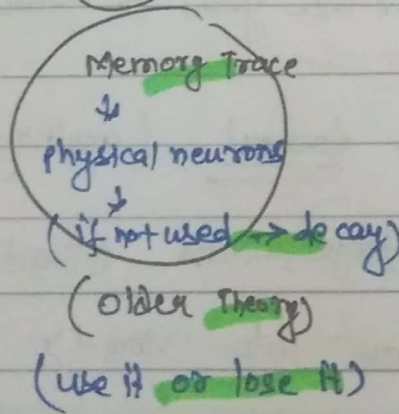 Memory Trace
↓
physical neurons
↓
(if not used → decay)
(Older Theory)
(use it or lose it)